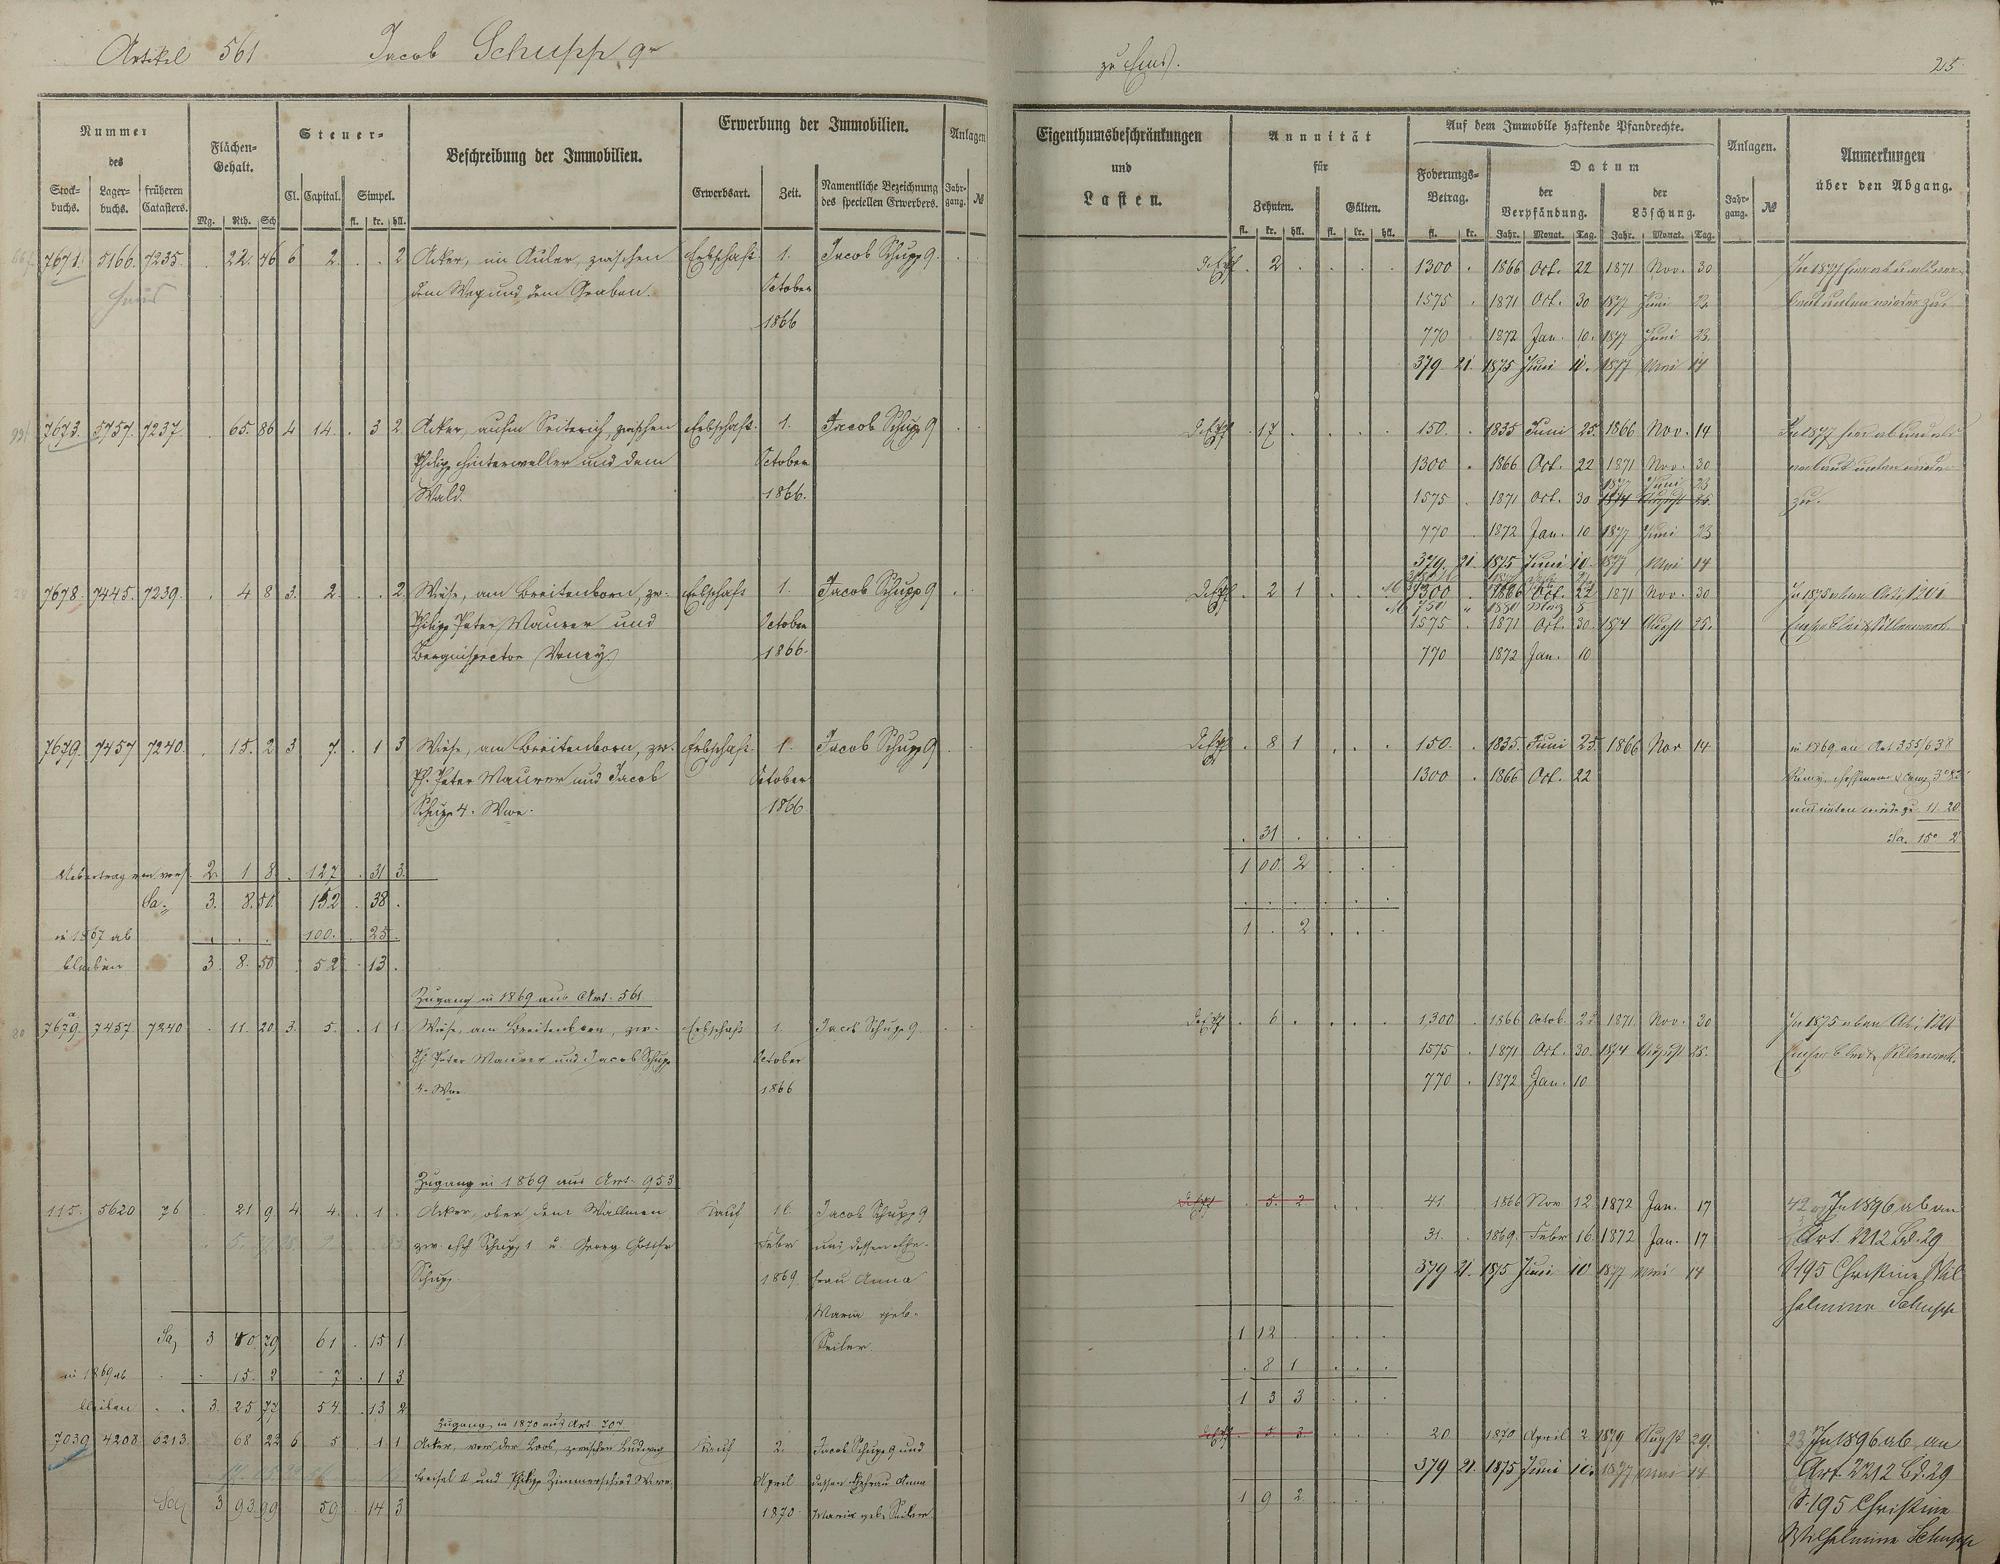 Artikel 561 Jacob Schupp 9r
zu Ems. 25.
Nummer des
Stock- buchs. Lager- buchs. früheren Catasters.
Flächen- Gehalt.
Mg. Rth. Sch
Steuer-
Cl. Capital. Simpel.
fl. kr. hll.
Beschreibung der Immobilien.
Erwerbung der Immobilien.
Erwerbsart. Zeit. Namentliche Bezeichnung des speciellen Erwerbers.
Anlagen
Jahr- gang. №
Eigenthumsbeschränkungen und Lasten.
Annuität für
Zehnten. Gülten.
fl. kr. hll. fl. kr. hll.
Auf dem Immobile haftende Pfandrechte.
Foderungs- Betrag.
fl. kr.
Datum
der Verpfändung. der Löschung.
Jahr. Monat. Tag. Jahr. Monat. Tag.
Anlagen.
Jahr- gang. №
Anmerkungen über den Abgang.
7671. 5166. 7235. . 22. 46 6 2. . . 2 Acker, im Auler, zwischen Erbschaft. 1. Jacob Schupp 9.
dem Weg und dem Graben. October
1866
. 2 . 1300 . 1866 Oct. 22 1871 Nov. 30
1575 . 1871 Oct. 30 1877 Juni 23
770 . 1872 Jan. 10. 1877 Juni 23.
379 21. 1875 Juni 10. 1877 Mai 14
7673. 5757. 7237 . 65. 86 4 14. . 3 2. Acker, zwischen Erbschaft. 1. Jacob Schupp 9
Philipp Hinterweller und dem October
Wald. 1866.
. 17. 150. . 1835 Juni 25. 1866 Nov. 14
1300 . 1866 Oct. 22 1871 Nov. 30
1877 Juni 23
1575 . 1871 Oct. 30 1874 August 25.
770 . 1872 Jan. 10 1877 Juni 23
379. 21. 1875 Juni 10. 1877 Mai 14
7678. 7445. 7239. . 4 8 3. 2. . . 2. Wiese, am Breitenborn, zw. Erbschaft 1. Jacob Schupp 9
Philipp Peter Maurer und October
1866.
. 2 1 1300 1866 Oct. 22 1871 Nov. 30
1575 . 1871 Oct. 30. 1874 August 25.
770 1872 Jan. 10
7679. 7457 7240. . 15. 2 3 7. . 1 3 Wiese, am Breitenborn, zw. Erbschaft. 1. Jacob Schupp 9
Ph. Peter Maurer und Jacob October
Schupp 4. Wwe. 1866
. 8 1 150. . 1835. Juni 25. 1866 Nov 14.
1300 . 1866 Oct. 22
in 1869 an Art 355/638
und unten wieder zu 11. 20.
Sa. 15 2
. 31 .
1 00. 2
1 . 2
Uebertrag von vorst. 2. 1 8. . 127 . 31 3.
Sa. 3. 8. 50. 152 . 38 .
in 1867 ab . . . 100. . 25 .
bleiben 3. 8. 50 52 . 13 .
Zugang in 1869 aus Art. 561
7679.a 7457 7240 . 11. 20 3. 5. . 1 1 Wiese, am Breitenborn, zw. Erbschaft 1. Jacob Schupp 9.
Ph. Peter Maurer und Jacob Schupp October
4. Wwe 1866
. 6 . 1,300 . 1866 Octob. 22 1871 Nov. 30
1575 . 1871 Oct. 30. 1874 August 25.
770 . 1872 Jan. 10
Zugang in 1869 aus Art. 953
115. 5620 76 . 21 9 4 4. . 1 . Acker, ober dem Wallmen Kauf 16. Jacob Schupp 9
Schupp 1 u. Georg Febr und dessen Ehe-
Schupp. 1869 frau Anna
Maria geb.
Seiler.
. 5. 2 41. 1866 Nov 12 1872 Jan. 17
31. . 1869. Febr 16. 1872 Jan. 17
379 21. 1875 Juni 10 1877 Mai 14
In 1896 ab an
Art. 2212 Bd. 29
S 195 Christine Wil
helmine Schupp
Sa 3 40. 79 61 . 15 1
in 1869 ab . . 15. 2 7 . 1 3
bleiben . . 3. 25 77 54. . 13 2
1 12
. 8 1
1 3 3
Zugang in 1870 aus Art. 707
7039 4208 6213 68 22 6 5 . 1 1 Acker, vor der Loos, zwischen Ludwig Kauf 2. Jacob Schupp 9 und
und Philipp Zimmerschied Wwe. April dessen Ehefrau Anna
1870. Maria geb. Seiler.
20 1870 April 2 1879 August 29.
379 21. 1875 Juni 10. 1877 Mai 14
23 In 1896 ab an
Art. 2212 Bd. 29
S. 195 Christine
Wilhelmine Schupp
Sa 3 93. 99 59 . 14 3
1 9 2.